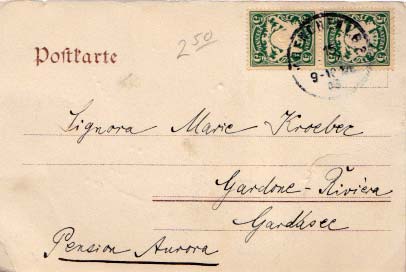 Postkarte
2 50
5 5 5 5
9-10
Signora Marie Kroeber
Gardone-Riviera
Gardasee
Pension Aurora